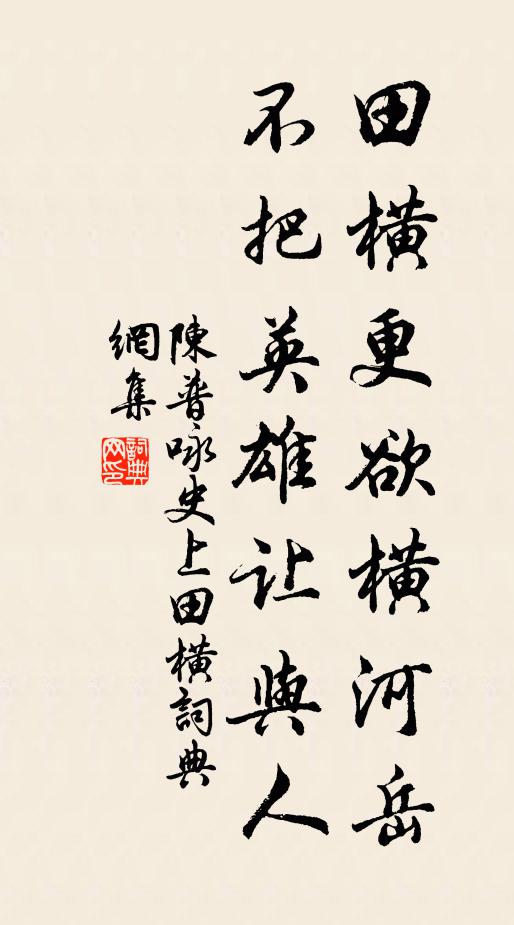 田橫更欲橫河岳
不把英雄让與人
陳普咏史上田橫詞典
網集
詞典
网印